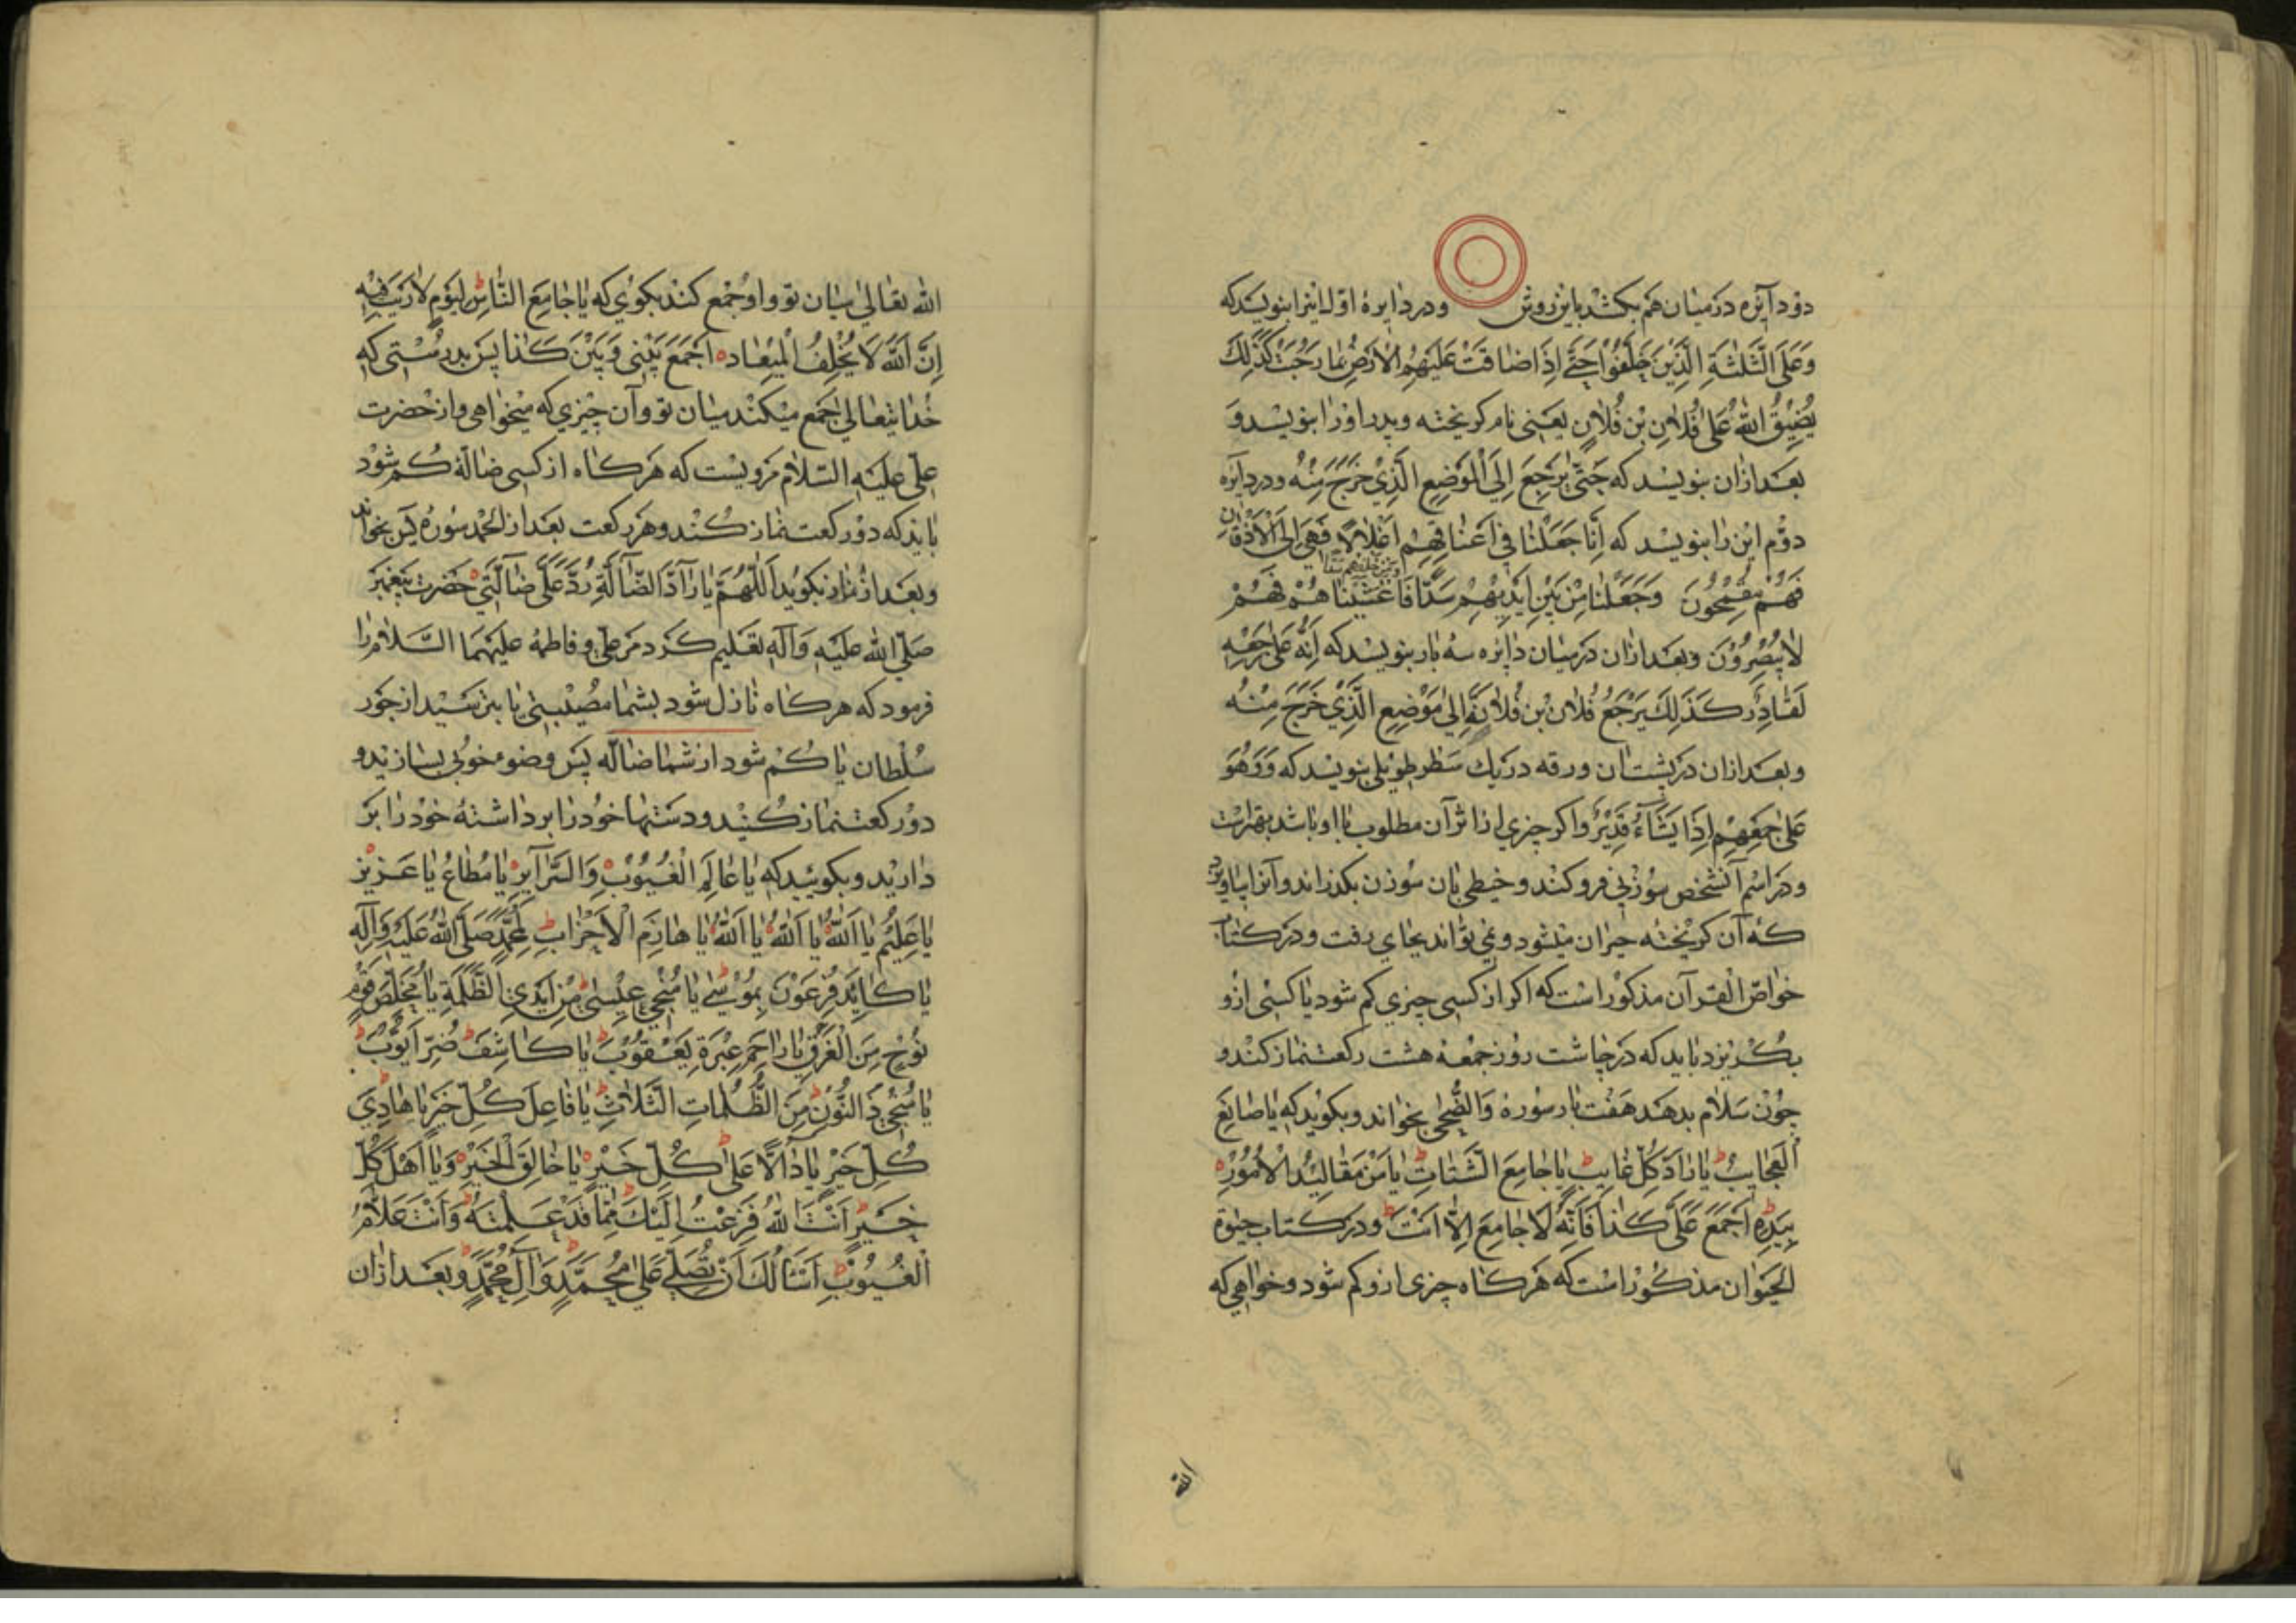 دو دآیره در میان هم بکشد باین روش و در دایرهٔ اوّل اینرا بنویسد که
وَعَلَی الثَّلٰثَةِ الَّذِیْنَ خُلِّفُوْا حَتّٰی اِذَا ضٰاقَتْ عَلَیْهِمُ الْاَرْضُ بِمٰا رَحُبَتْ کَذٰلِكَ
یُضِیْقُ اللّٰهُ عَلٰی فُلٰانِ بْنِ فُلٰانٍ یعنی نام کریخته و پدر او را بنویسد و
بعد ازان بنویسد که حَتّٰی یَرْجِعَ اِلَی الْمَوْضِعِ الَّذِیْ خَرَجَ مِنْهُ و در دایره
دوّم این را بنویسد که اِنّٰا جَعَلْنٰا فِیْ اَعْنٰاقِهِمْ اَغْلٰالًا فَهِیَ اِلَی الْاَذْقٰانِ
فَهُمْ مُقْمَحُونَ وَجَعَلْنٰا مِنْ بَیْنِ اَیْدِیْهِمْ سَدًّا وَمِنْ خَلْفِهِمْ سَدًّا فَاَغْشَیْنٰاهُمْ فَهُمْ
لٰا یُبْصِرُوْنَ و بعد ازان در میان دایره سه بار بنویسد که اِنَّهُ عَلٰی رَجْعِهِ
لَقٰادِرٌ کَذٰلِكَ یَرْجَعُ فُلٰان بْن فُلٰانَةٍ اِلٰی مَوْضِعِ الَّذِیْ خَرَجَ مِنْهُ
و بعد ازان در پشت آن ورقه در یك سطر طویلی بنویسد که وَوَهُوَ
عَلٰی جَمْعِهِمْ اِذَا یَشَآءُ قَدِیْرٌ و اکر چیزی از اثر آن مطلوب با او باشد بهتر است
و در اسم آنشخص سوزنی فرو کند و خیطی بان سوزن بکذراند و آنرا بیاویزد
که آن کریخته حیران میشود و نمی تواند بجای رفت و در کتاب
خواصّ القرآن مذکور است که اکر از کسی چیزی کم شود یا کسی ازو
بکریزد باید که در چاشت روز جمعه هشت رکعت نماز کند و
چون سلام بدهد هفت بار سورهٔ وَالضُّحٰی بخواند و بکوید که یٰا صٰانِعَ
الْعَجٰایِبِ یٰا رٰادَّ کُلِّ غٰایِبٍ یٰا جٰامِعَ الشَّتٰاتِ یٰا مَنْ مَقٰالِیْدُ الْاُمُوْرِ
بِیَدِهِ اجْمَعْ عَلَیَّ کَذٰا فَاِنَّهُ لَا جٰامِعَ اِلّٰا اَنْتَ و در کتاب حیوة
الحیوان مذکور است که هر کاه چیزی ازو کم شود و خواهی که
الله
الله تعالی میان تو و او جمع کند بکوی که یٰا جٰامِعَ النّٰاسِ لِیَوْمٍ لٰا رَیْبَ فِیْهِ
اِنَّ اللّٰهَ لَا یُخْلِفُ الْمِیْعٰادَ اجْمَعْ بَیْنِی وَبَیْنَ کَذٰا پس بدرستی که
خدا یتعالی جمع میکند میان تو و آن چیزی که میخواهی و از حضرت
علی علیه السّلام مرویست که هر کاه از کسی ضالّة کم شود
باید که دو رکعت نماز کند و هر رکعت بعد از الحمد سورهٔ یس بخواند
و بعد از نماز بکوید اَللّٰهُمَّ یٰا رَآدَّ الضّٰالَّةِ رُدَّ عَلَیَّ ضٰالَّتِیْ حضرت پیغمبر
صَلّی الله علیه وَآلهِ تعلیم کرد مر علی و فاطمهٔ علیهما السّلام را
فرمود که هر کاه نازل شود بشما مصیبتی یا بترسید از جور
سلطان یا کم شود از شما ضالّه پس وضوء خوبی بسازید و
دو رکعت نماز کنید و دستها خود را برداشته خود را بر
دارید و بکویید که یٰا عٰالِمَ الْغُیُوْبِ وَالسَّرٰآیِرِ یٰا مُطٰاعُ یٰا عَزِیْزُ
یٰا عَلِیْمُ یٰا اَللّٰهُ یٰا اَللّٰهُ یٰا اَللّٰهُ یٰا هٰازِمَ الْاَحْزٰابِ لِمُحَمَّدٍ صَلَّی اللّٰهُ عَلَیْهِ وَآلِه
یٰا کٰایِدَ فِرْعَوْنَ بِمُوْسٰی یٰا مُنْجِیَ عِیْسٰی مِنْ اَیْدِیِ الظَّلَمَةِ یٰا مُخَلِّصَ قَوْمِ
نُوْحٍ مِنَ الْغَرَقِ یٰا رٰاحِمَ عِبْرَةِ یَعْقُوْبَ یٰا کٰاشِفَ ضُرِّ اَیُّوْبَ
یٰا مُنْجِیَ ذِالنُّوْنِ مِنَ الظُّلُمٰاتِ الثَّلٰاثِ یٰا فٰاعِلَ کُلِّ خَیْرٍ یٰا هٰادِیَ
کُلِّ خَیْرٍ یٰا دٰالًّا عَلٰی کُلِّ خَیْرٍ یٰا خٰالِقَ الْخَیْرِ وَیٰا اَهْلَ کُلِّ
خَیْرٍ اَنْتَ اللّٰهُ فَزِعْتُ اِلَیْكَ مِمّٰا قَدْ عَلِمْتَهُ وَاَنْتَ عَلّٰامُ
الْغُیُوْبِ اَسْئَالُكَ اَنْ تُصَلِّیَ عَلٰی مُحَمَّدٍ وَآلِ مُحَمَّدٍ و بعد ازان